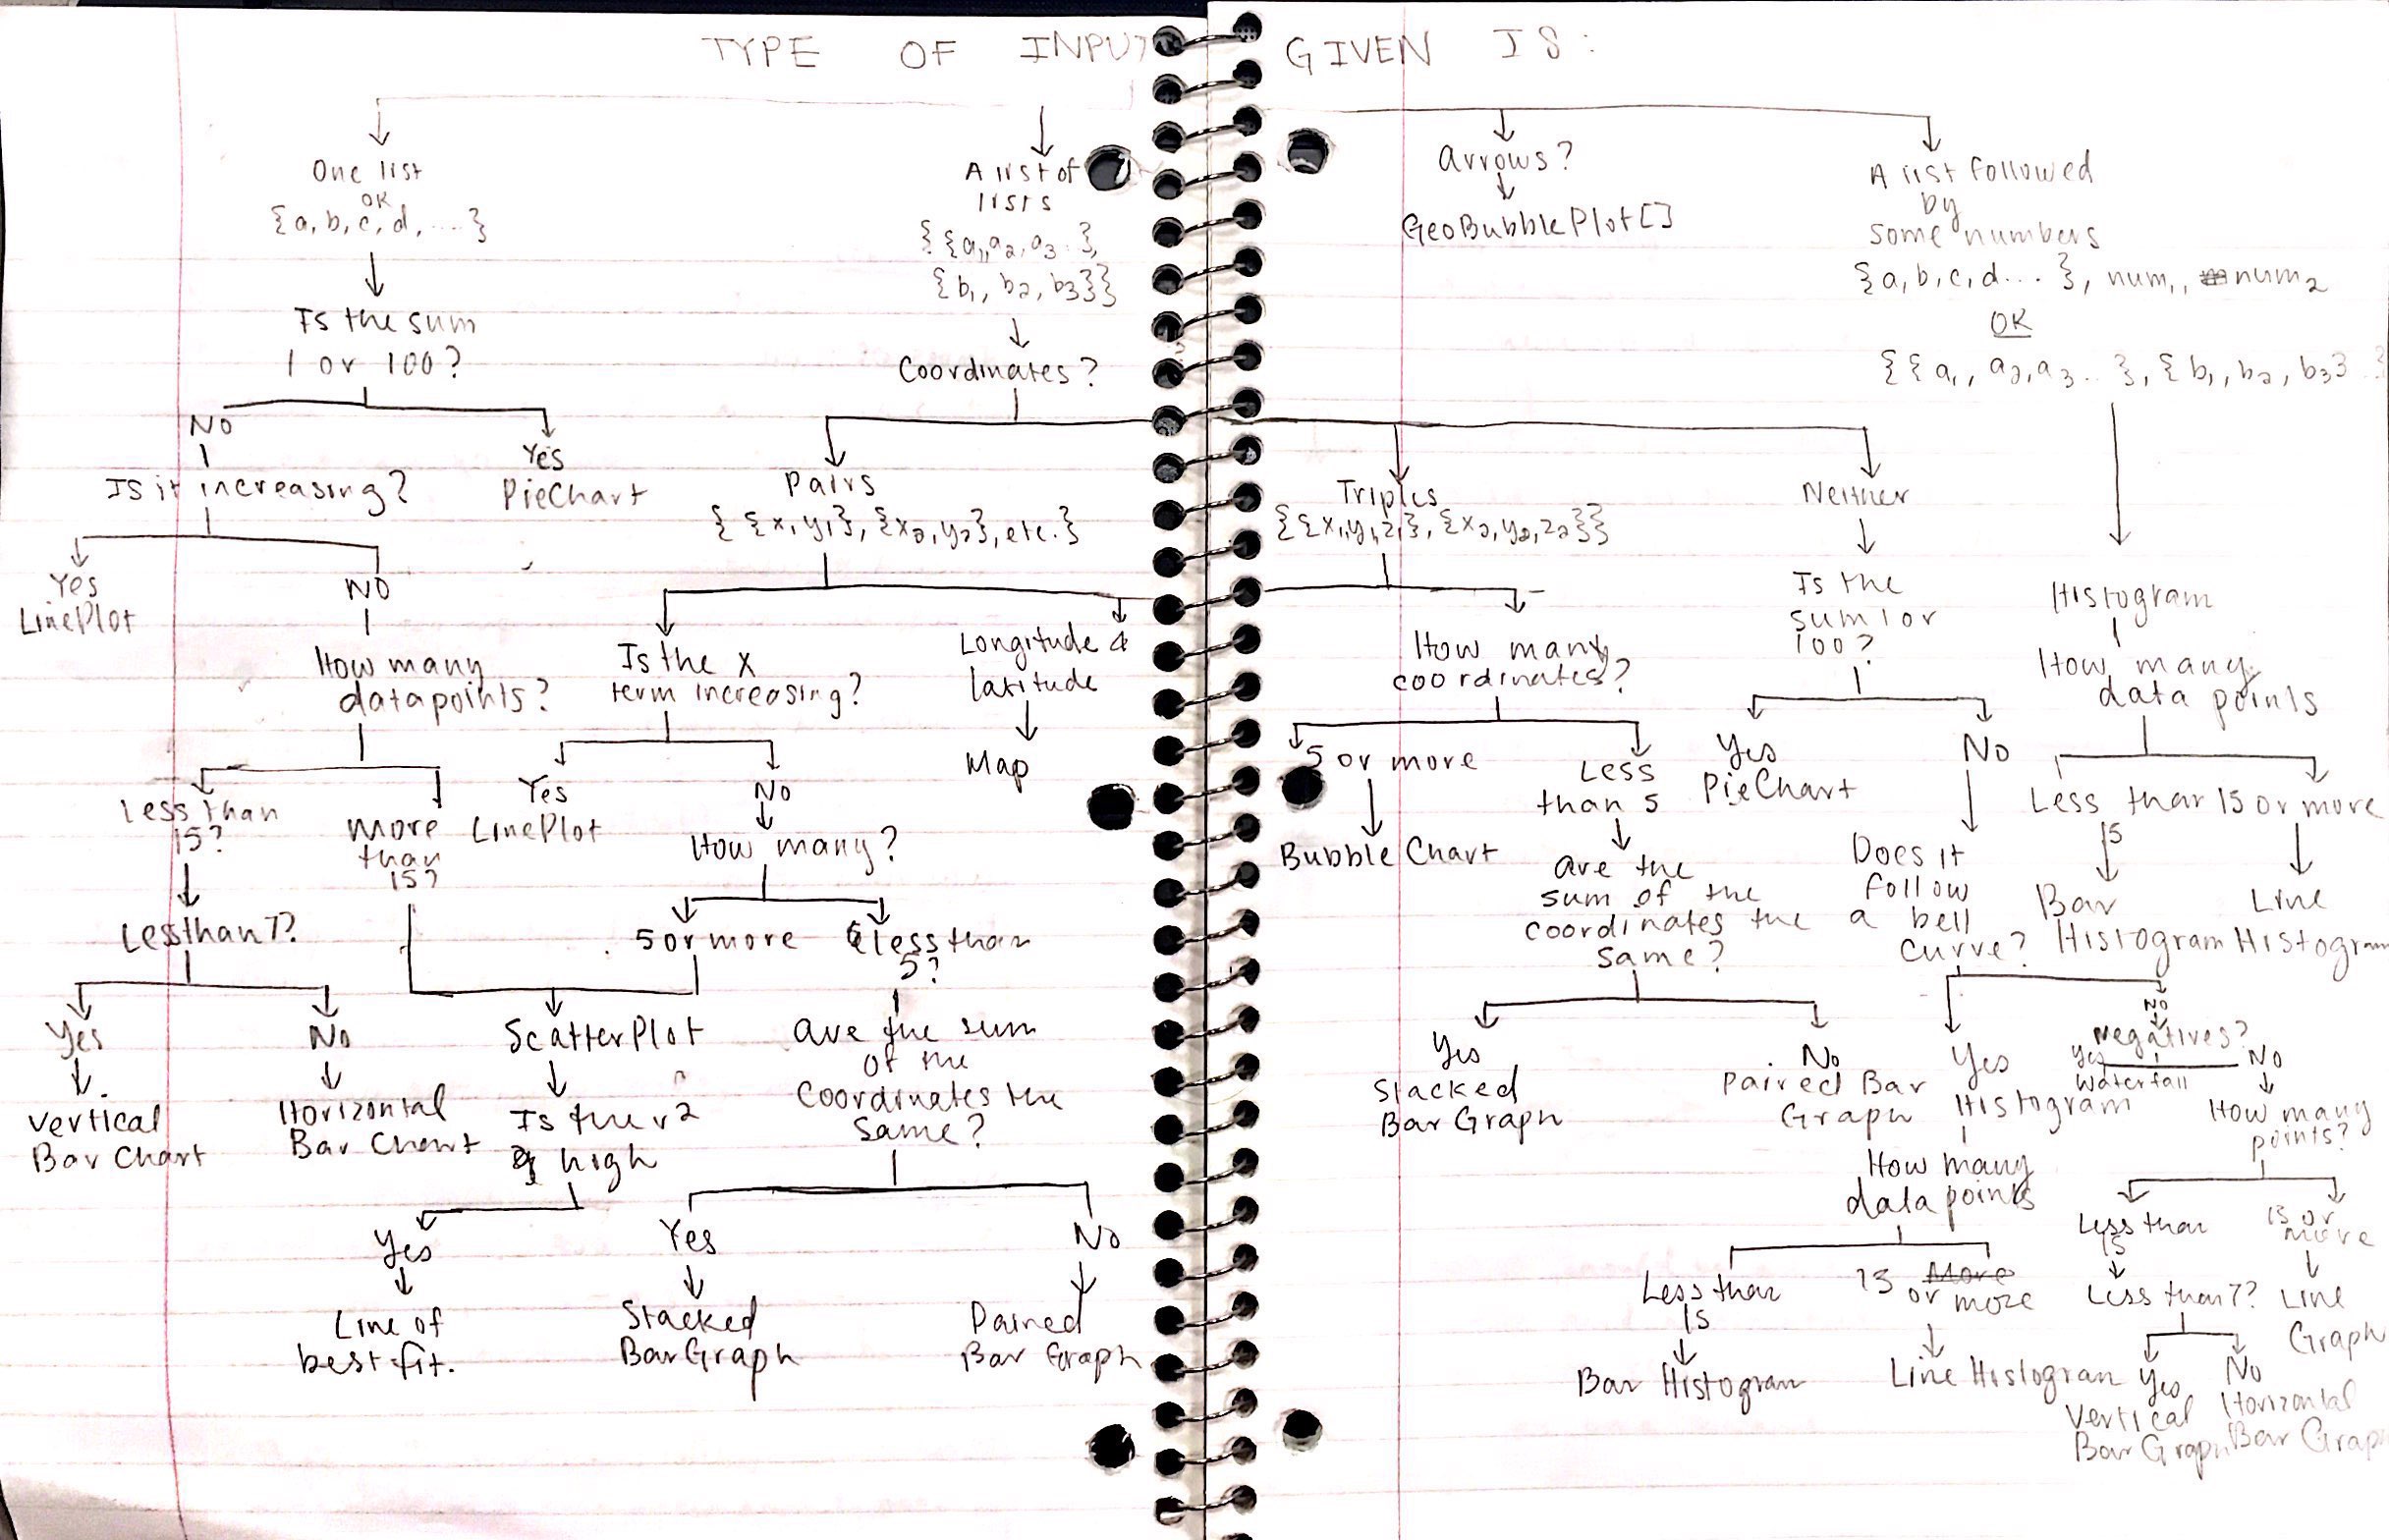 TYPE OF INPUT GIVEN IS:
One list
OK
{a, b, c, d, ....}
Is the sum
1 or 100?
No
Yes
PieChart
Is it increasing?
Yes
LinePlot
NO
How many
datapoints?
Less than
15?
more
than
15?
Lessthan7?
Yes
No
Vertical
Bar Chart
Horizontal
Bar Chart
A list of
lists
{{a1, a2, a3..},
{b1, b2, b3}}
Coordinates?
Pairs
{{x1, y1}, {x2, y2}, etc.}
Is the x
term increasing?
Longitude &
latitude
Map
Yes
LinePlot
No
How many?
5 or more
less than
5?
ScatterPlot
Is the r2
high
Yes
Line of
best fit.
are the sum
of the
Coordinates the
same?
Yes
Stacked
BarGraph
No
Paired
Bar Graph
Triples
{{x1, y1, z1}, {x2, y2, z2}}
How many
coordinates?
5 or more
Bubble Chart
Less
than 5
are the
sum of the
coordinates the
same?
Yes
Stacked
Bar Graph
No
Paired Bar
Graph
Neither
Is the
sum 1 or
100?
Yes
PieChart
No
Does it
follow
a bell
curve?
Yes
Histogram
How many
data points
Less than
15
Bar Histogram
15 More
or more
Line Histogram
No
Negatives?
Yes
Waterfall
No
How many
points?
Less than
15
Less than 7?
Yes
Vertical
Bar Graph
No
Horizontal
Bar Grap
15 or
more
Line
Graph
Arrows?
GeoBubblePlot[]
A list followed
by
some numbers
{a, b, c, d...}, num1, num2
OK
{{a1, a2, a3..}, {b1, b2, b3}
Histogram
How many
data points
Less than
15
Bar
Histogram
15 or more
Line
Histogram